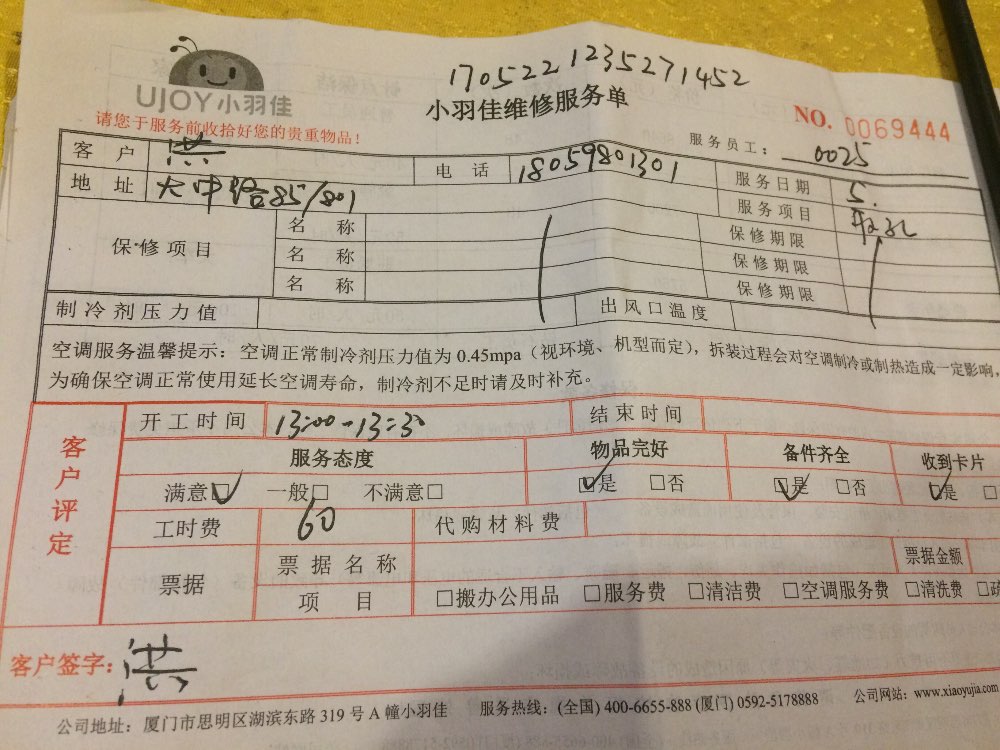 1705221235271452
UJOY小羽佳
小羽佳维修服务单
NO. 0069444
请您于服务前收拾好您的贵重物品！
服务员工： 0025
客户 洪 电话 18059801301 服务日期 5.
地址 大中路85/801 服务项目 取孔
保修项目 名称 保修期限
名称 保修期限
名称 保修期限
制冷剂压力值 出风口温度
空调服务温馨提示：空调正常制冷剂压力值为0.45mpa（视环境、机型而定），拆装过程会对空调制冷或制热造成一定影响，
为确保空调正常使用延长空调寿命，制冷剂不足时请及时补充。
客户评定
开工时间 13:00-13:30 结束时间
服务态度 物品完好 备件齐全 收到卡片
满意□ 一般□ 不满意□ □是 □否 □是 □否 □是 □
工时费 60 代购材料费
票据 票据名称 票据金额
项目 □搬办公用品 □服务费 □清洁费 □空调服务费 □清洗费 □疏
客户签字：洪
公司地址：厦门市思明区湖滨东路319号A幢小羽佳 服务热线：(全国) 400-6655-888 (厦门) 0592-5178888 公司网站：www.xiaoyujia.com